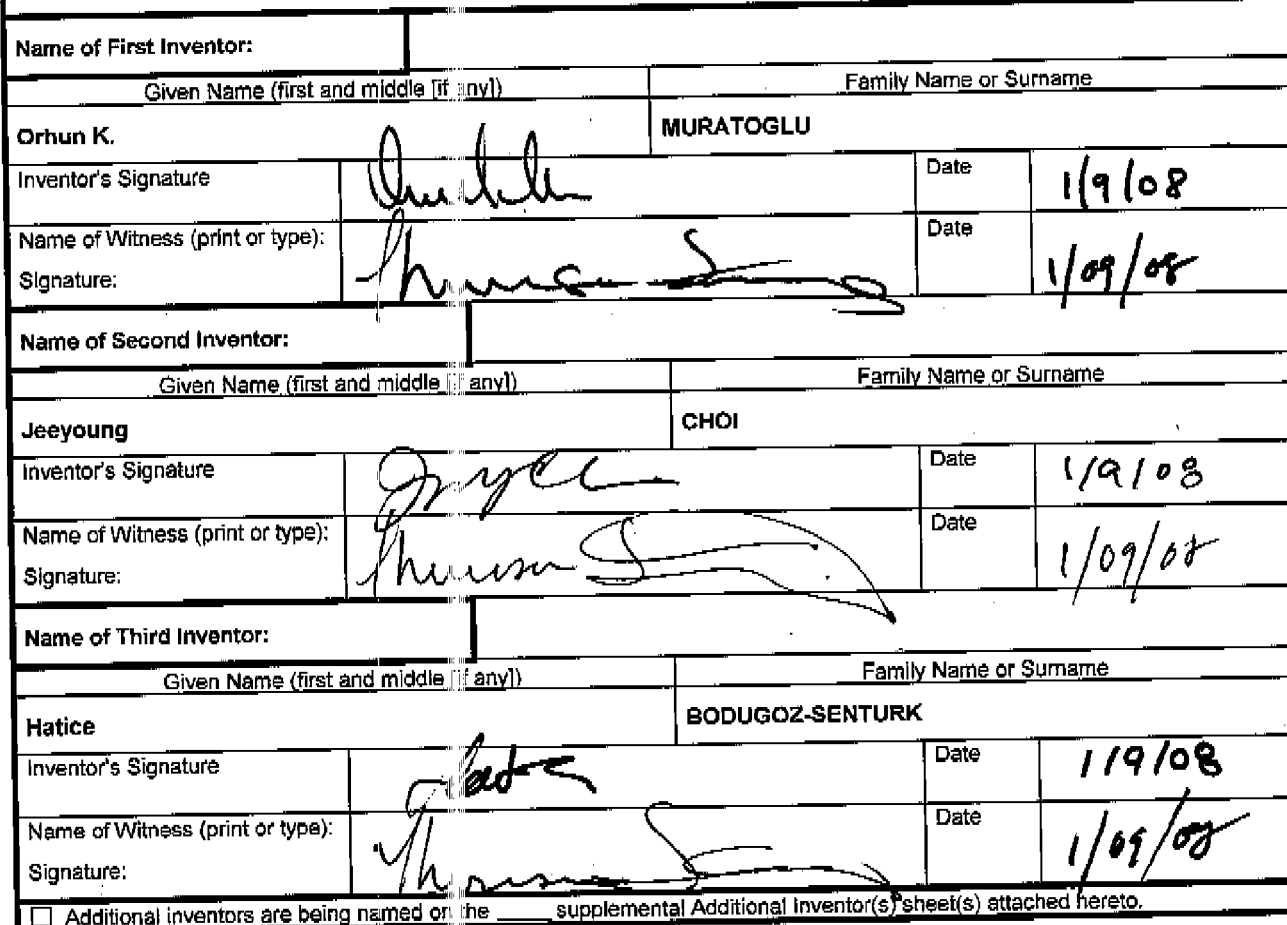 Name of First Inventor:
Given Name (first and middle [if any]) Family Name or Surname
Orhun K. MURATOGLU
Inventor's Signature Date 1/9/08
Name of Witness (print or type): Date
Signature: 1/09/08
Name of Second Inventor:
Given Name (first and middle [if any]) Family Name or Surname
Jeeyoung CHOI
Inventor's Signature Date 1/9/08
Name of Witness (print or type): Date
Signature: 1/09/08
Name of Third Inventor:
Given Name (first and middle [if any]) Family Name or Surname
Hatice BODUGOZ-SENTURK
Inventor's Signature Date 1/9/08
Name of Witness (print or type): Date
Signature: 1/09/08
☐ Additional inventors are being named on the ____ supplemental Additional Inventor(s) sheet(s) attached hereto.